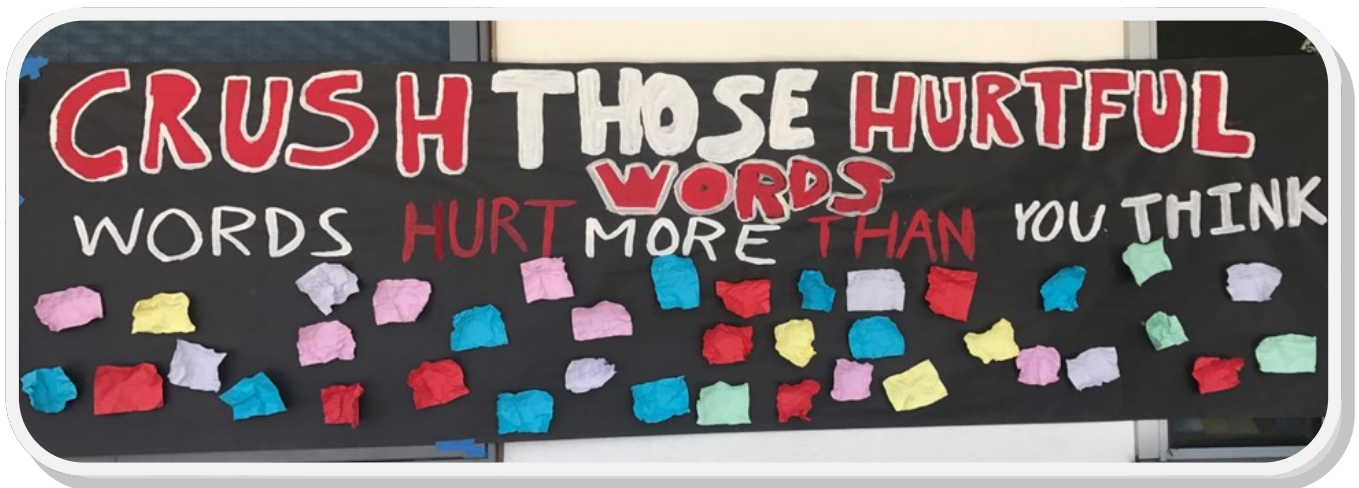 CRUSH THOSE HURTFUL
WORDS
WORDS HURT MORE THAN YOU THINK